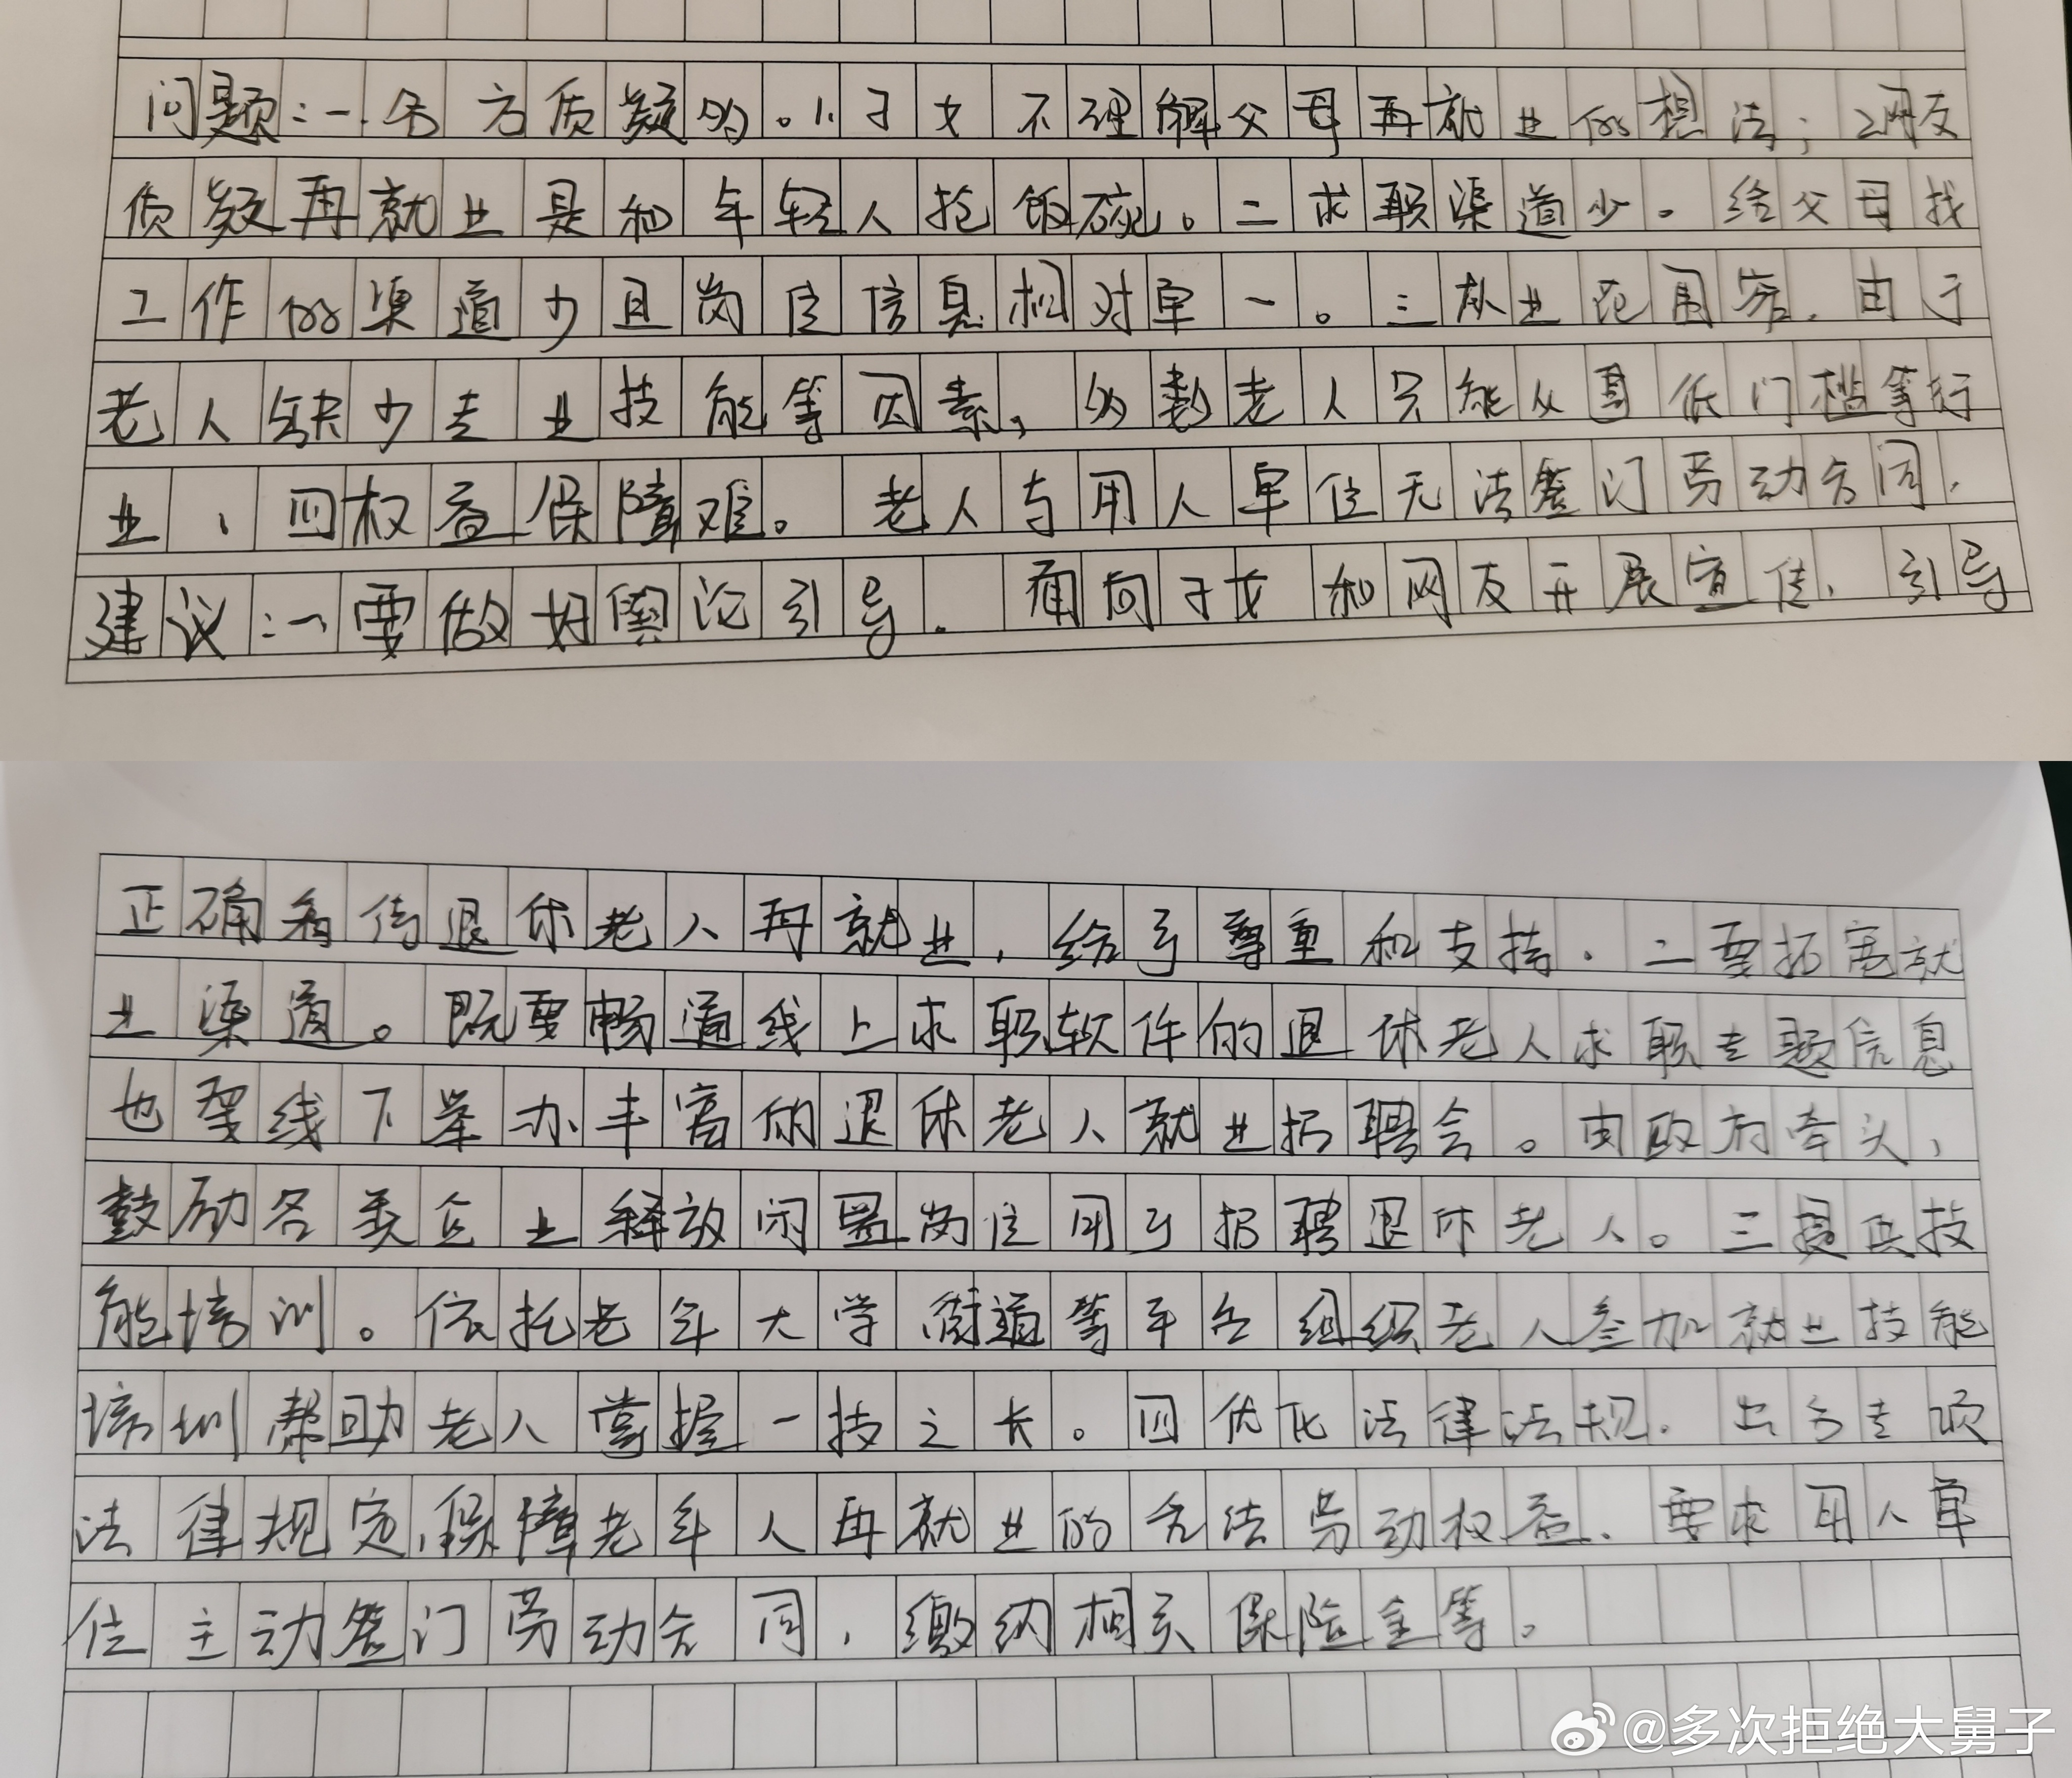 问题:一.各方质疑多。1.子女不理解父母再就业的想法;2网友
质疑再就业是和年轻人抢饭碗。二求职渠道少。给父母找
工作的渠道少且岗位信息相对单一。三就业范围窄.由于
老人缺少专业技能等因素,多数老人只能从事低门槛等行
业、四权益保障难。老人与用人单位无法签订劳动合同.
建议:一要做好舆论引导.面向子女和网友开展宣传.引导
正确看待退休老人再就业,给予尊重和支持.二要拓宽就
业渠道。既要畅通线上求职软件的退休老人求职专题信息
也要线下举办丰富的退休老人就业招聘会。由政府牵头,
鼓励各类企业释放闲置岗位用于招聘退休老人。三提供技
能培训。依托老年大学街道等平台组织老人参加就业技能
培训帮助老人掌握一技之长。四优化法律法规.出台专项
法律规定,保障老年人再就业的合法劳动权益.要求用人单
位主动签订劳动合同,缴纳相关保险金等。
@多次拒绝大舅子